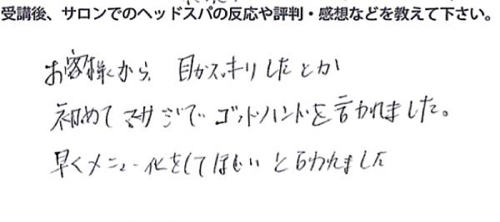 受講後、サロンでのヘッドスパの反応や評判・感想などを教えて下さい。
お客様から、目がスッキリしたとか
初めてマッサージでゴッドハンドを言われました。
早くメニュー化をしてほしいと言われました